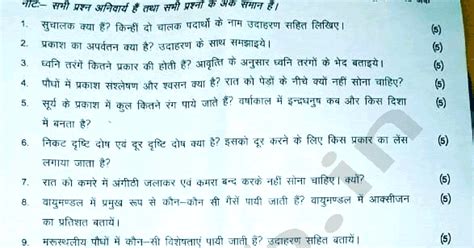 नोट:- सभी प्रश्न अनिवार्य हैं तथा सभी प्रश्नों के अंक समान हैं।
1. सुचालक क्या हैं? किन्हीं दो चालक पदार्थों के नाम उदाहरण सहित लिखिए। (5)
2. प्रकाश का अपर्वतन क्या है? उदाहरण के साथ समझाइये। (5)
3. ध्वनि तरंगें कितने प्रकार की होती हैं? आवृत्ति के अनुसार ध्वनि तरंगों के भेद बताइये। (5)
4. पौधों में प्रकाश संश्लेषण और श्वसन क्या है? रात को पेड़ों के नीचे क्यों नहीं सोना चाहिए? (5)
5. सूर्य के प्रकाश में कुल कितने रंग पाये जाते हैं? वर्षाकाल में इन्द्रधनुष कब और किस दिशा (5)
में बनता है?
6. निकट दृष्टि दोष एवं दूर दृष्टि दोष क्या है? इसको दूर करने के लिए किस प्रकार का लेंस (5)
लगाया जाता है?
7. रात को कमरे में अंगीठी जलाकर एवं कमरा बन्द करके नहीं सोना चाहिए। क्यों? (5)
8. वायुमण्डल में प्रमुख रूप से कौन-कौन सी गैसें पायी जाती हैं? वायुमण्डल में आक्सीजन (5)
का प्रतिशत बतायें।
9. मरूस्थलीय पौधों में कौन-सी विशेषताएं पायी जाती हैं? उदाहरण सहित बतायें। (5)